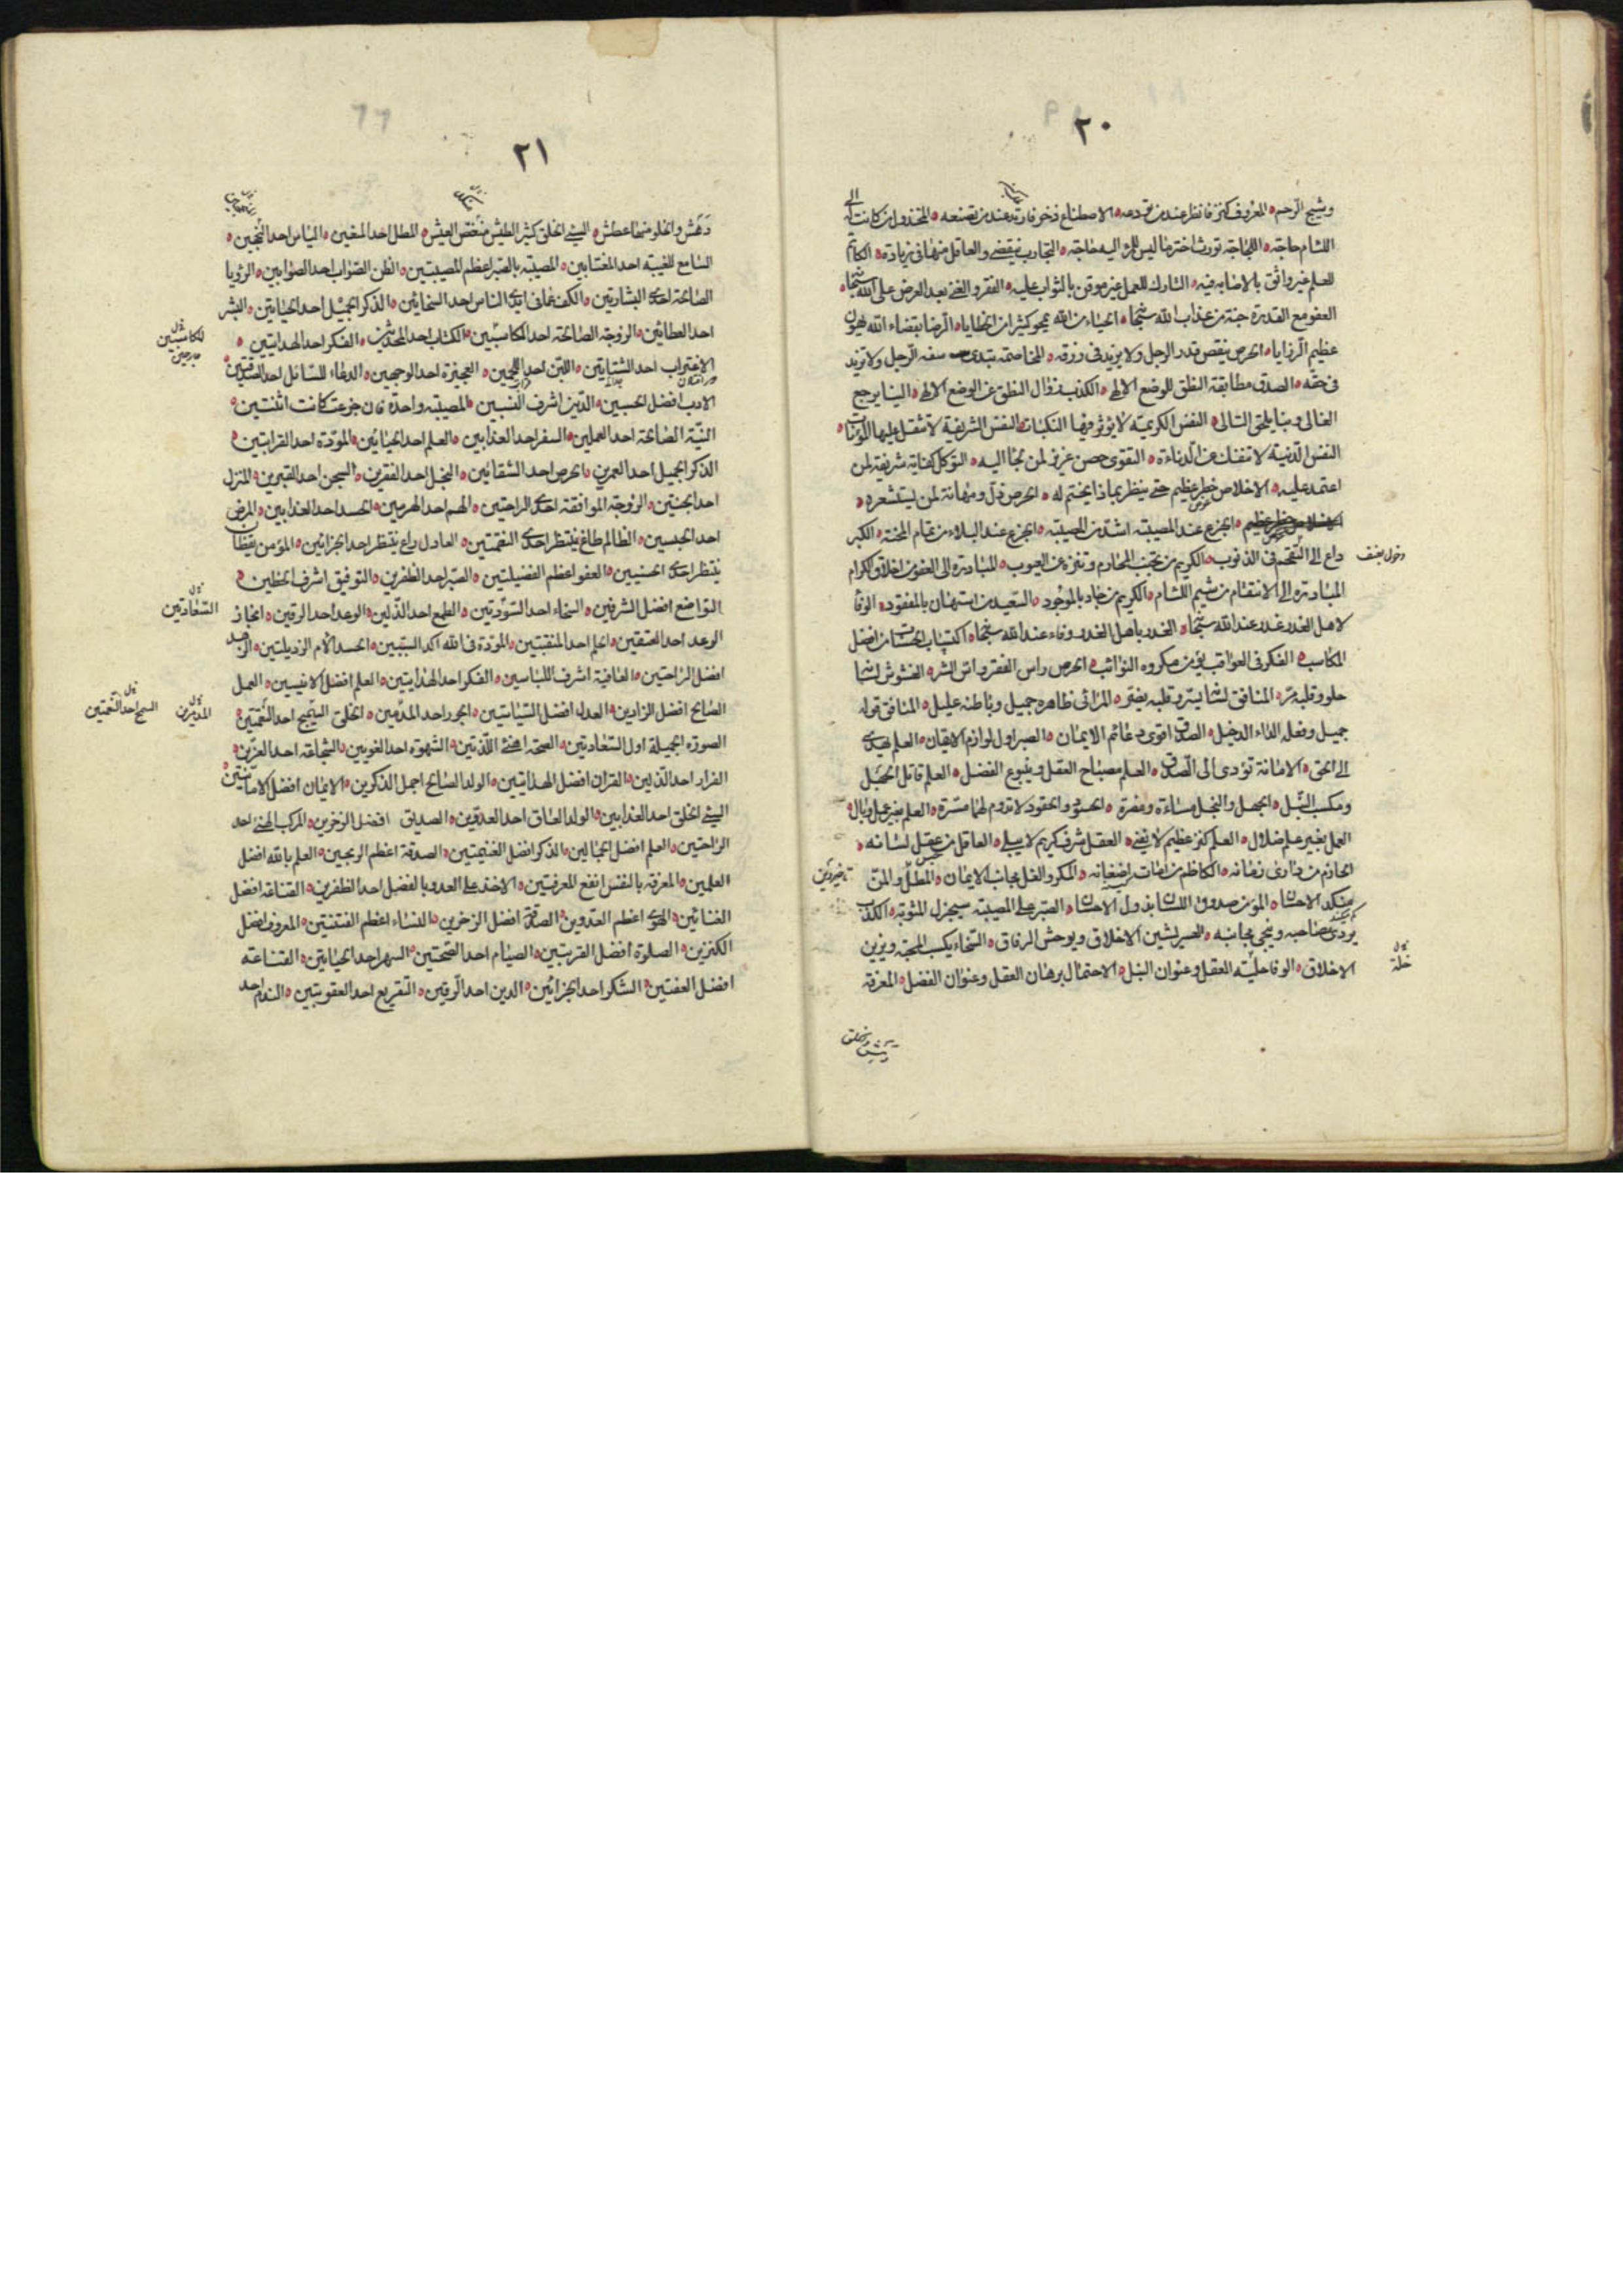 ٢٠
وشيج الرحم المعروف كنز فانظر عند من تودعه الاصطناع ذخر فارتد عند من تضعه المخذول من كانت له الى
اللئام حاجة اللجاجة تورث اخترما ليس للمرء اليه حاجة التجارب لا تنقضى والعاقل منها فى زيادة الكاتم
للعلم غير واثق بالاصابه فيه التارك للعمل غير موقن بالثواب عليه الفقر والغنى بعد العرض على الله سبحانه
العفو مع القدرة جنة من عذاب الله سبحانه الحياء من الله يمحو كثيرا من الخطايا الرضا بقضاء الله يهون
عظيم الرزايا الحرص ينقص قدر الرجل ولا يزيد فى رزقه المخاصمة تبدى سفه الرجل ولا تزيد
فى حقه الصدق مطابقة النطق للوضع الالهى الكذب زوال النطق عن الوضع الالهى الينا يرجع
الغالى وبنا يلحق التالى النفس الكريمة لا يؤثر فيها النكبات النفس الشريفة لا تثقل عليها المؤنات
النفس الدنية لا تنفك عن الدناءة التقوى حصن عزيز لمن لجأ اليه التوكل كفاية شريفة لمن
اعتمد عليه الاخلاص خطر عظيم حتى ينظر بماذا يختم له الحرص ذل ومهانة لمن يستشعره
الجزع عند المصيبة اشد من المصيبة الجزع عند البلاء من تمام المحنة الكبر
داع الى التقحم فى الذنوب الكريم من تجنب المحارم وتنزه عن العيوب المبادرة الى العفو من اخلاق الكرام
المبادرة الى الانتقام من شيم اللئام الكريم من جاد بالموجود السعيد من استهان بالمفقود الوفا
لاهل الغدر غدر عند الله سبحانه الغدر باهل الغدر وفاء عند الله سبحانه اكتساب الحسنات من افضل
المكاسب الفكر فى العواقب يؤمن مكروه النوائب الحرص راس الفقر واس الشر الغشوش لسانه
حلو وقلبه مر المنافق لسانه يسر وقلبه يضر المرائى ظاهره جميل وباطنه عليل المنافق قوله
جميل وفعله الداء الدخيل الصدق اقوى دعائم الايمان الصبر اول لوازم الايقان العلم يهدى
الى الحق الامانة تؤدى الى الصدق العلم مصباح العقل وينبوع الفضل العلم قاتل الجهل
ومكسب النبل الجهل والبخل مساءة ومضرة الحسود والحقود لا تدوم لهما مسرة العلم بغير عمل وبال
العمل بغير علم ضلال العلم كنز عظيم لا يفنى العقل شرف كريم لا يبلى العاقل من عقل لسانه
الحازم من دارى زمانه الكاظم من امات اضغانه المكر والغل مجانب الايمان المطل والمن
منكد الاحسان المؤمن صدوق اللسان بذول الاحسان الصبر على المصيبة يجزل المثوبة الكذب
يردى صاحبه وينجى مجانبه العسر يشين الاخلاق ويوحش الرفاق السخاء يكسب المحبة ويزين
الاخلاق الوفا حلية العقل وعنوان النبل الاحتمال برهان العقل وعنوان الفضل المعرفة
خلة
٢١
دهش والخلو منها عطش السيئ الخلق كثير الطيش منغص العيش المطل احد المنعين الياس احد النجحين
السامع للغيبة احد المغتابين المصيبة بالصبر اعظم المصيبتين الظن الصواب احد الصوابين الرؤيا
الصالحة احدى البشارتين الكف عما فى ايدى الناس احد السخائين الذكر الجميل احد الحياتين البشر
احد العطائين الزوجة الصالحة احد الكاسبين الكتاب احد المحدثين الفكر احد الهدايتين
الاغتراب احد الشتاتين اللبن احد اللحمين العجيزة احد الوجهين الدعاء للسائل احد الصدقتين
الادب افضل الحسبين الدين اشرف النسبين المصيبة واحدة فان جزعت كانت اثنتين
النية الصالحة احد العملين السفر احد العذابين العلم احد الحياتين المودة احد القرابتين
الذكر الجميل احد العمرين الحرص احد الشقائين البخل احد الفقرين السجن احد القبرين المنزل
احد الجنتين الزوجة الموافقة احدى الراحتين الهم احد الهرمين الحسد احد العذابين المرض
احد الحبسين الظالم طاغ ينتظر احدى النقمتين العادل راع ينتظر احد الجزائين المؤمن يقظان
ينتظر احدى الحسنيين العفو اعظم الفضيلتين الصبر احد الظفرين التوفيق اشرف الحظين
التواضع افضل الشرفين السخاء احد السعادتين الطمع احد الذلين الوعد احد الرقين انجاز
الوعد احد العتقين الحلم احد المنقبتين المودة فى الله آكد السببين الحسد الأم الرذيلتين الزهد
افضل الراحتين العافية اشرف اللباسين الفكر احد الهدايتين العلم افضل الانيسين العمل
الصالح افضل الزادين العدل افضل السياستين الجور احد المدمرين الخلق السجيح احد النعمتين
الصورة الجميلة اول السعادتين الصحة اهنى اللذتين الشهوة احد المغويين الشجاعة احد العزين
الفرار احد الذلين القران افضل الهدايتين الولد الصالح اجمل الذكرين الايمان افضل الامانتين
السيئ الخلق احد العذابين الولد العاق احد العدوين الصديق افضل الذخرين المركب الهنى احد
الراحتين العلم افضل الجمالين الذكر افضل الغنيمتين الصدقة اعظم الربحين العلم بالله افضل
العلمين المعرفة بالنفس انفع المعرفتين الاخذ على العدو بالفضل احد الظفرين القناعة افضل
الغنائين الهوى اعظم العدوين الصدقة افضل الذخرين النساء اعظم الفتنتين المعروف افضل
الكنزين الصلوة افضل القربتين الصيام احد الصحتين السهر احد الحياتين القناعة
افضل العفتين الشكر احد الجزائين الدين احد الرقين التقريع احد العقوبتين الندم احد
السعادتين
السجح احد النعمتين